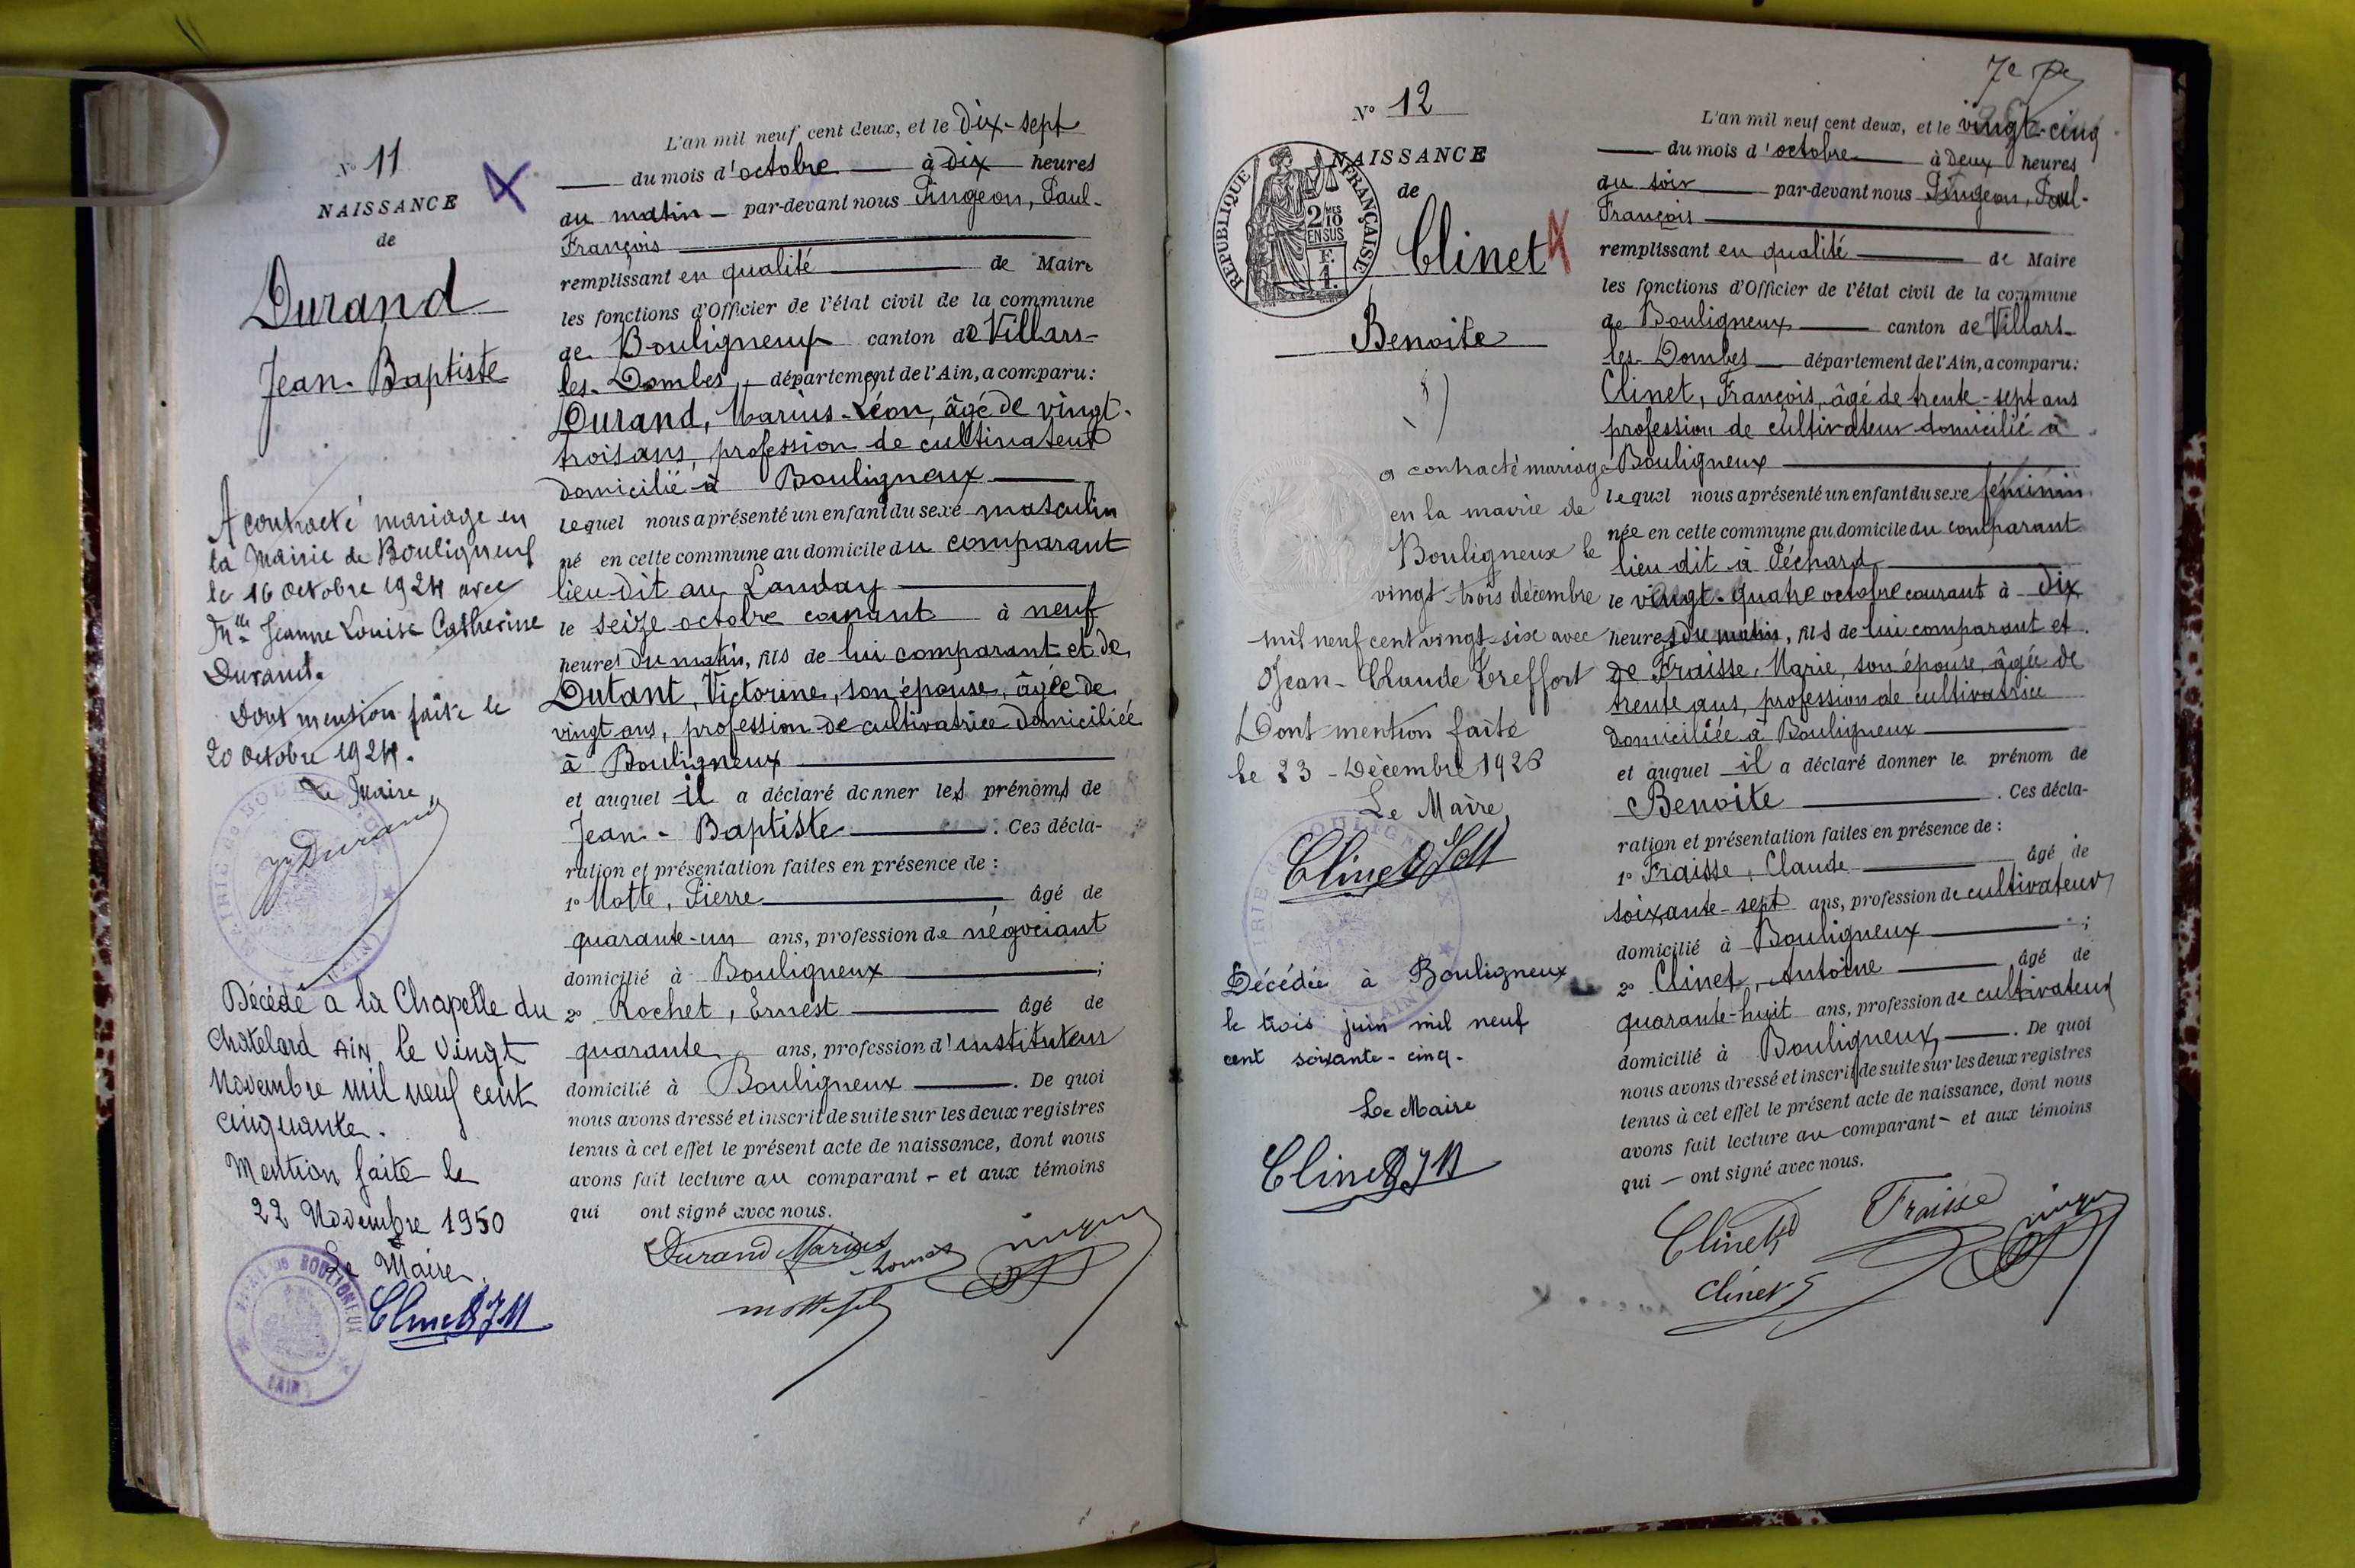 N° 11
NAISSANCE
de
Durand
Jean-Baptiste
A contracté mariage en
la Mairie de Bouligneux
le 16 Octobre 1924 avec
Mlle Jeanne Louise Catherine
Durand.
Dont mention faite le
20 Octobre 1924.
Le Maire,
Durand
Décédé a la Chapelle du
Châtelard AIN le vingt
Novembre mil neuf cent
cinquante.
Mention faite le
22 Novembre 1950
Le Maire.
BOULIGNEUX
(AIN)
Clinet JM
L'an mil neuf cent deux, et le dix-sept
du mois d'octobre à dix heures
du matin par-devant nous Pingeon, Paul-
François
remplissant en qualité de Maire
les fonctions d'Officier de l'état civil de la commune
de Bouligneux canton de Villars-
les-Dombes, département de l'Ain, a comparu:
Durand, Marius-Léon, âgé de vingt-
trois ans, profession de cultivateur
domicilié à Bouligneux
lequel nous a présenté un enfant du sexe masculin
né en cette commune au domicile du comparant
lieu dit au Landay
le seize octobre courant à neuf
heures du matin, fils de lui comparant et de
Dutant, Victorine, son épouse, âgée de
vingt ans, profession de cultivatrice domiciliée
à Bouligneux
et auquel il a déclaré donner les prénoms de
Jean-Baptiste. Ces décla-
ration et présentation faites en présence de :
1° Motte, Pierre âgé de
quarante-un ans, profession de négociant
domicilié à Bouligneux ;
2° Rochet, Ernest âgé de
quarante ans, profession d'instituteur
domicilié à Bouligneux. De quoi
nous avons dressé et inscrit de suite sur les deux registres
tenus à cet effet le présent acte de naissance, dont nous
avons fait lecture au comparant - et aux témoins
qui ont signé avec nous.
Durand Marius
7e
N° 12
NAISSANCE
de
RÉPUBLIQUE FRANÇAISE
2/10 MES
EN SUS
F.
1.
Clinet
Benoite
a contracté mariage
en la mairie de
Bouligneux le
vingt-trois décembre
mil neuf cent vingt-six avec
Jean-Claude Treffort
Dont mention faite
le 23 Décembre 1926
Le Maire,
Clinet JM
Décédée à Bouligneux
le trois juin mil neuf
cent soixante-cinq.
Le Maire
Clinet JM
L'an mil neuf cent deux, et le vingt-cinq
du mois d'octobre à deux heures
du soir par-devant nous Pingeon, Paul-
François
remplissant en qualité de Maire
les fonctions d'Officier de l'état civil de la commune
de Bouligneux canton de Villars-
les-Dombes département de l'Ain, a comparu:
Clinet, François, âgé de trente-sept ans
profession de cultivateur domicilié à
Bouligneux
lequel nous a présenté un enfant du sexe féminin
née en cette commune au domicile du comparant
lieu dit à Péchard
le vingt-quatre octobre courant à dix
heures du matin, fils de lui comparant et
de Fraisse, Marie, son épouse, âgée de
trente ans, profession de cultivatrice
domiciliée à Bouligneux
et auquel il a déclaré donner le prénom de
Benoite. Ces décla-
ration et présentation faites en présence de :
1° Fraisse, Claude âgé de
soixante-sept ans, profession de cultivateur
domicilié à Bouligneux ;
2° Clinet, Antoine âgé de
quarante-huit ans, profession de cultivateur
domicilié à Bouligneux. De quoi
nous avons dressé et inscrit de suite sur les deux registres
tenus à cet effet le présent acte de naissance, dont nous
avons fait lecture au comparant - et aux témoins
qui - ont signé avec nous.
Clinet Fraisse
Clinet